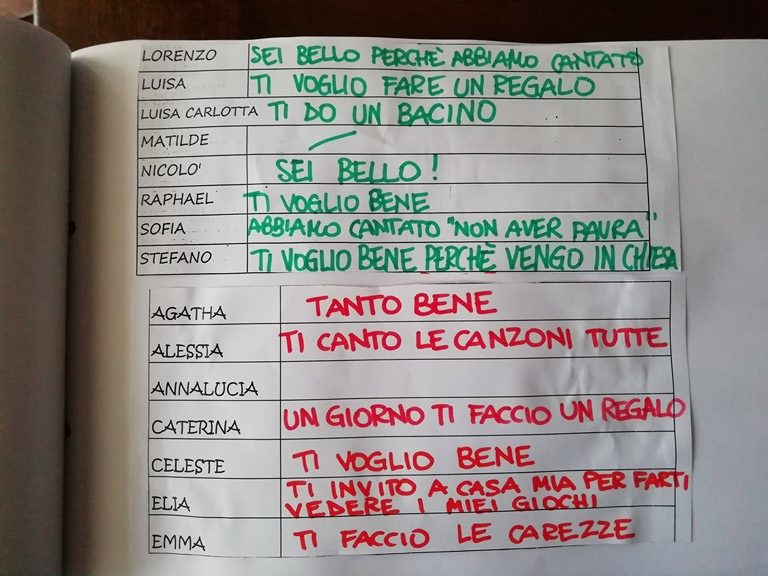 LORENZO SEI BELLO PERCHÈ ABBIAMO CANTATO
LUISA TI VOGLIO FARE UN REGALO
LUISA CARLOTTA TI DO UN BACINO
MATILDE —
NICOLO' SEI BELLO!
RAPHAEL TI VOGLIO BENE
SOFIA ABBIAMO CANTATO "NON AVER PAURA"
STEFANO TI VOGLIO BENE PERCHÈ VENGO IN CHIESA
AGATHA TANTO BENE
ALESSIA TI CANTO LE CANZONI TUTTE
ANNALUCIA
CATERINA UN GIORNO TI FACCIO UN REGALO
CELESTE TI VOGLIO BENE
ELIA TI INVITO A CASA MIA PER FARTI
VEDERE I MIEI GIOCHI
EMMA TI FACCIO LE CAREZZE